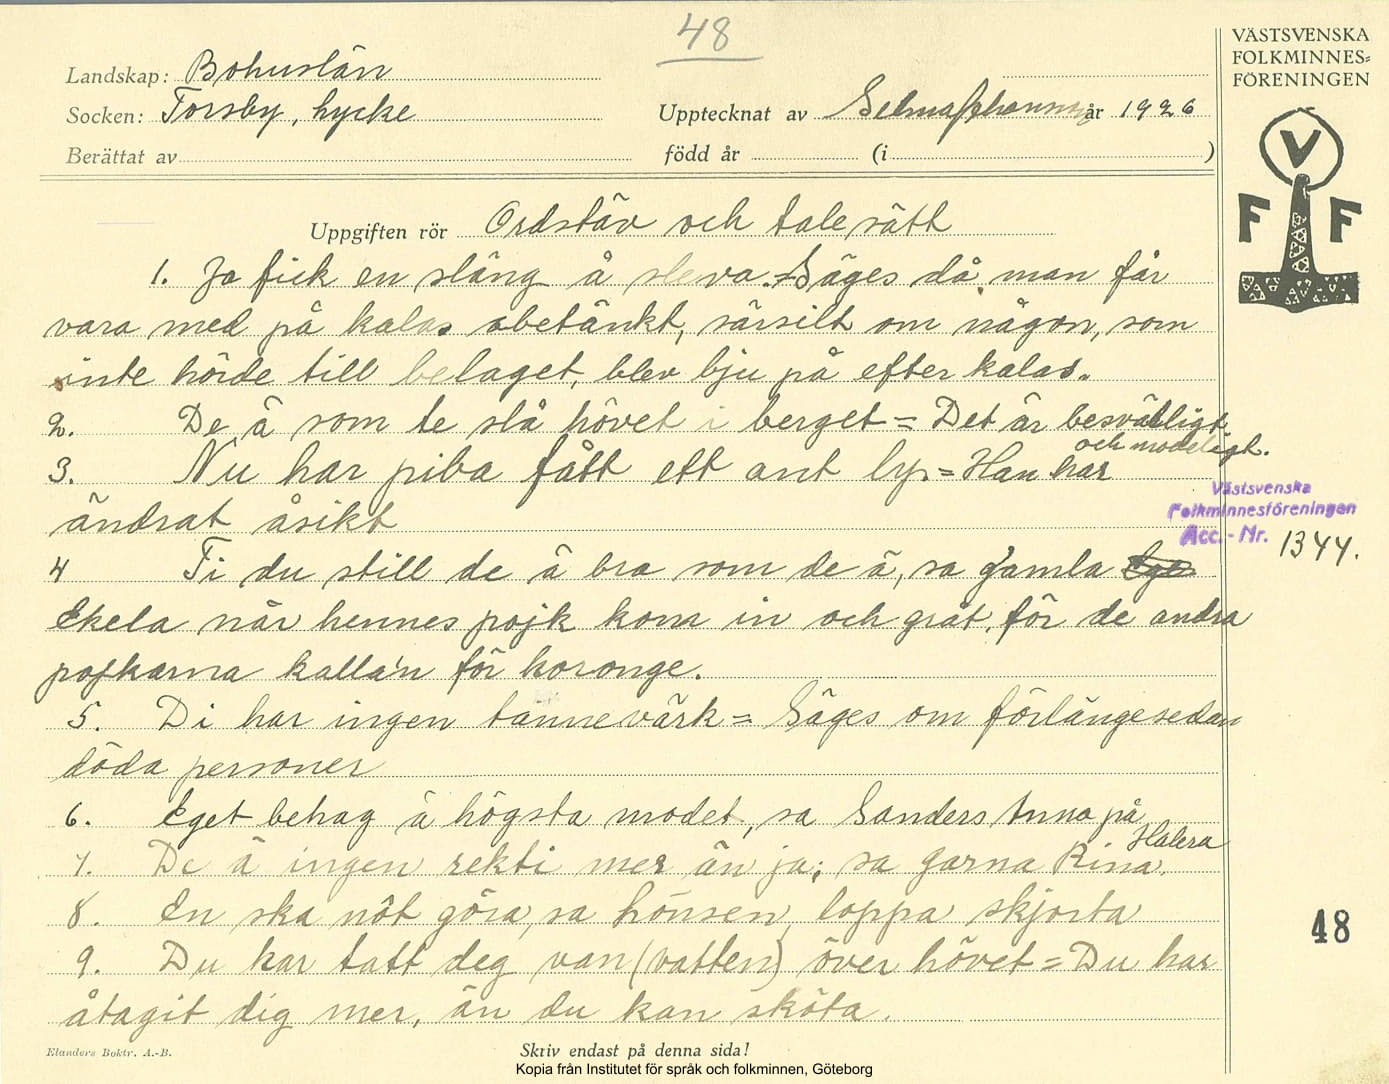 48
VÄSTSVENSKA
FOLKMINNES-
FÖRENINGEN
V
F F
Landskap: Bohuslän
Socken: Torsby, Lycke
Upptecknat av Selma Johansson år 1926
Berättat av
född år (i )
Uppgiften rör Ordstäv och talesätt
1. Ja fick en släng å sleva. = Säges då man får
vara med på kalas obetänkt, särsilt om någon, som
inte hörde till belaget, blev bju på efterkalas.
2. De ä som te slå hövet i berget = Det är besvärligt
och modeligt.
3. Nu har piba fått ett ant ly. = Han har
ändrat åsikt
Västsvenska
Folkminnesföreningen
Acc. - Nr. 1344.
4 Ti du still de ä bra som de ä, sa gamla
Ekela när hennes pojk kom in och grät, för de andra
pojkarna kalla'n för horonge.
5. Di har ingen tannevärk = Säges om förlängesedan
döda personer
6. Eget behag ä högsta modet, sa Sanders Anna på
Halera
7. De ä ingen rekti mer än ja; sa garna Rina.
8. En ska nôt göra, sa hönsen, loppa skjorta
9. Du har tatt deg van (vatten) över hövet = Du har
åtagit dig mer, än du kan sköta.
48
Elanders Boktr. A.-B.
Skriv endast på denna sida!
Kopia från Institutet för språk och folkminnen, Göteborg